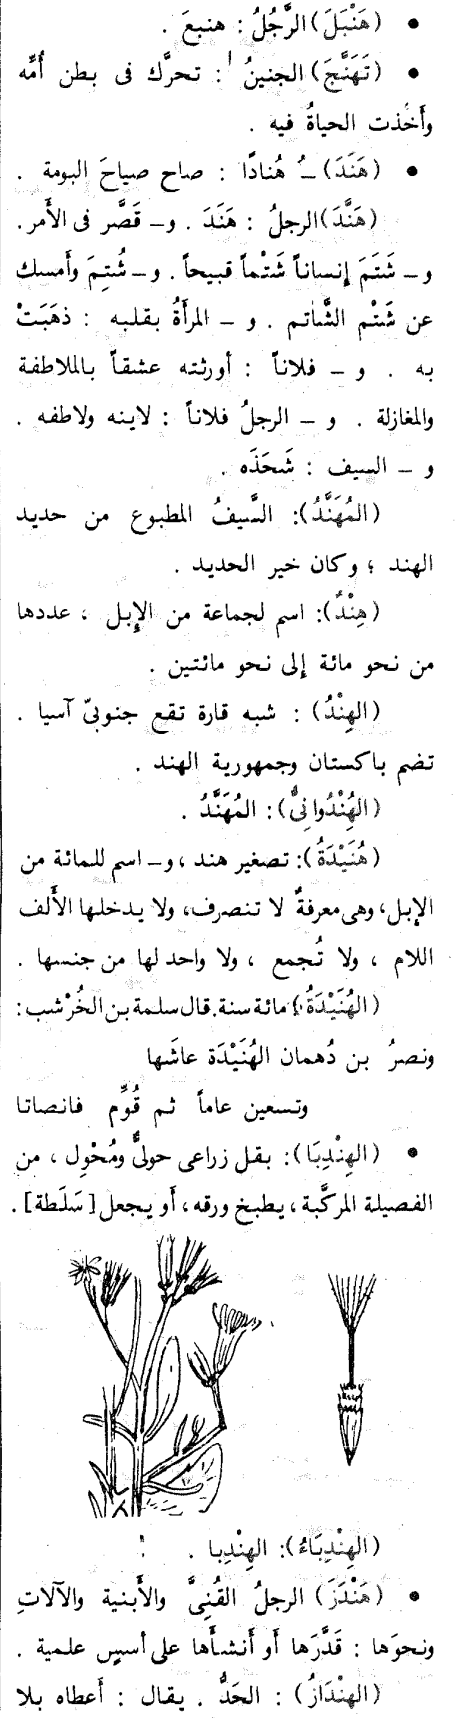 • (هَنْبَلَ) الرَّجُلُ : هنبعَ .
• (تَهَنَّجَ) الجنينُ : تحرَّك فى بطن أُمِّه
وأَخذت الحياةُ فيه .
• (هَنَدَ) ـُ هُنادًا : صاح صياحَ البومة .
(هَنَّدَ) الرجلُ : هَنَدَ . و ـ قَصَّر فى الأَمر.
و ـ شَتَمَ إِنساناً شَتْماً قبيحاً . و ـ شُتِمَ وأَمسك
عن شَتْم الشَّاتم . و ـ المرأَةُ بقلبه : ذهَبَتْ
به . و ـ فلاناً : أَورثته عشقاً بالملاطفة
والمغازلة . و ـ الرجلُ فلاناً : لاينه ولاطفه .
و ـ السيف : شَحَذَه .
(المُهَنَّدُ): السَّيفُ المطبوع من حديد
الهند ؛ وكان خير الحديد .
(هِنْدٌ): اسم لجماعة من الإِبل ، عددها
من نحو مائة إلى نحو مائتين .
(الهِنْدُ) : شبه قارة تقع جنوبىّ آسيا .
تضم باكستان وجمهورية الهند .
(الهُنْدُوانِىُّ): المُهَنَّدُ .
(هُنَيْدَةُ): تصغير هند ، و ـ اسم للمائة من
الإبل، وهى معرفةٌ لا تنصرف، ولا يدخلها الأَلف
اللام ، ولا تُجمع ، ولا واحد لها من جنسها .
(الهُنَيْدَةُ) مائة سنة. قال سلمة بن الخُرْشب :
ونصرُ بن دُهمان الهُنَيْدَة عاشَها
وتسعين عاماً ثم قُوِّم فانصاتا
• (الهِنْدِبَا): بقل زراعى حولىٌّ ومُحْوِل ، من
الفصيلة المركَّبة ، يطبخ ورقه، أَو يجعل [سَلَطة] .
(الهِنْدِبَاءُ): الهِنْدِبا .
• (هَنْدَزَ) الرجلُ القُنِىَّ والأَبنية والآلاتِ
ونحوَها : قَدَّرَها أَو أَنشأَها على أسسٍ علمية .
(الهِنْدَازُ) : الحَدُّ . يقال : أَعطاه بلا